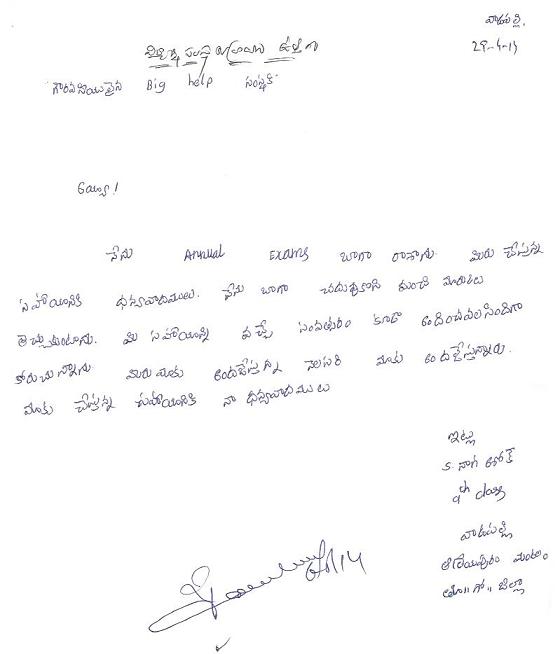 వాడపల్లి.
29-4-14
గౌరవనీయులైన Big help సంస్థకి
అయ్యా!
నేను Annual Exams బాగా రాసాను. మీరు చేస్తున్న
సహాయానికి ధన్యవాదములు. నేను బాగా చదువుకొని మంచి మార్కులు
తెచ్చుకుంటాను. మీ సహాయాన్ని వచ్చే సంవత్సరం కూడా అందించవలసిందిగా
కోరుచున్నాను. మీరు మాకు అందజేస్తున్న నెలసరి మాకు అందుచేస్తున్నారు.
మాకు చేస్తున్న సహాయానికి నా ధన్యవాదములు
ఇట్లు
S. నాగ అశోక్
9th class
వాడపల్లి
ఆత్రేయపురం మండలం
తూ॥ గో॥ జిల్లా